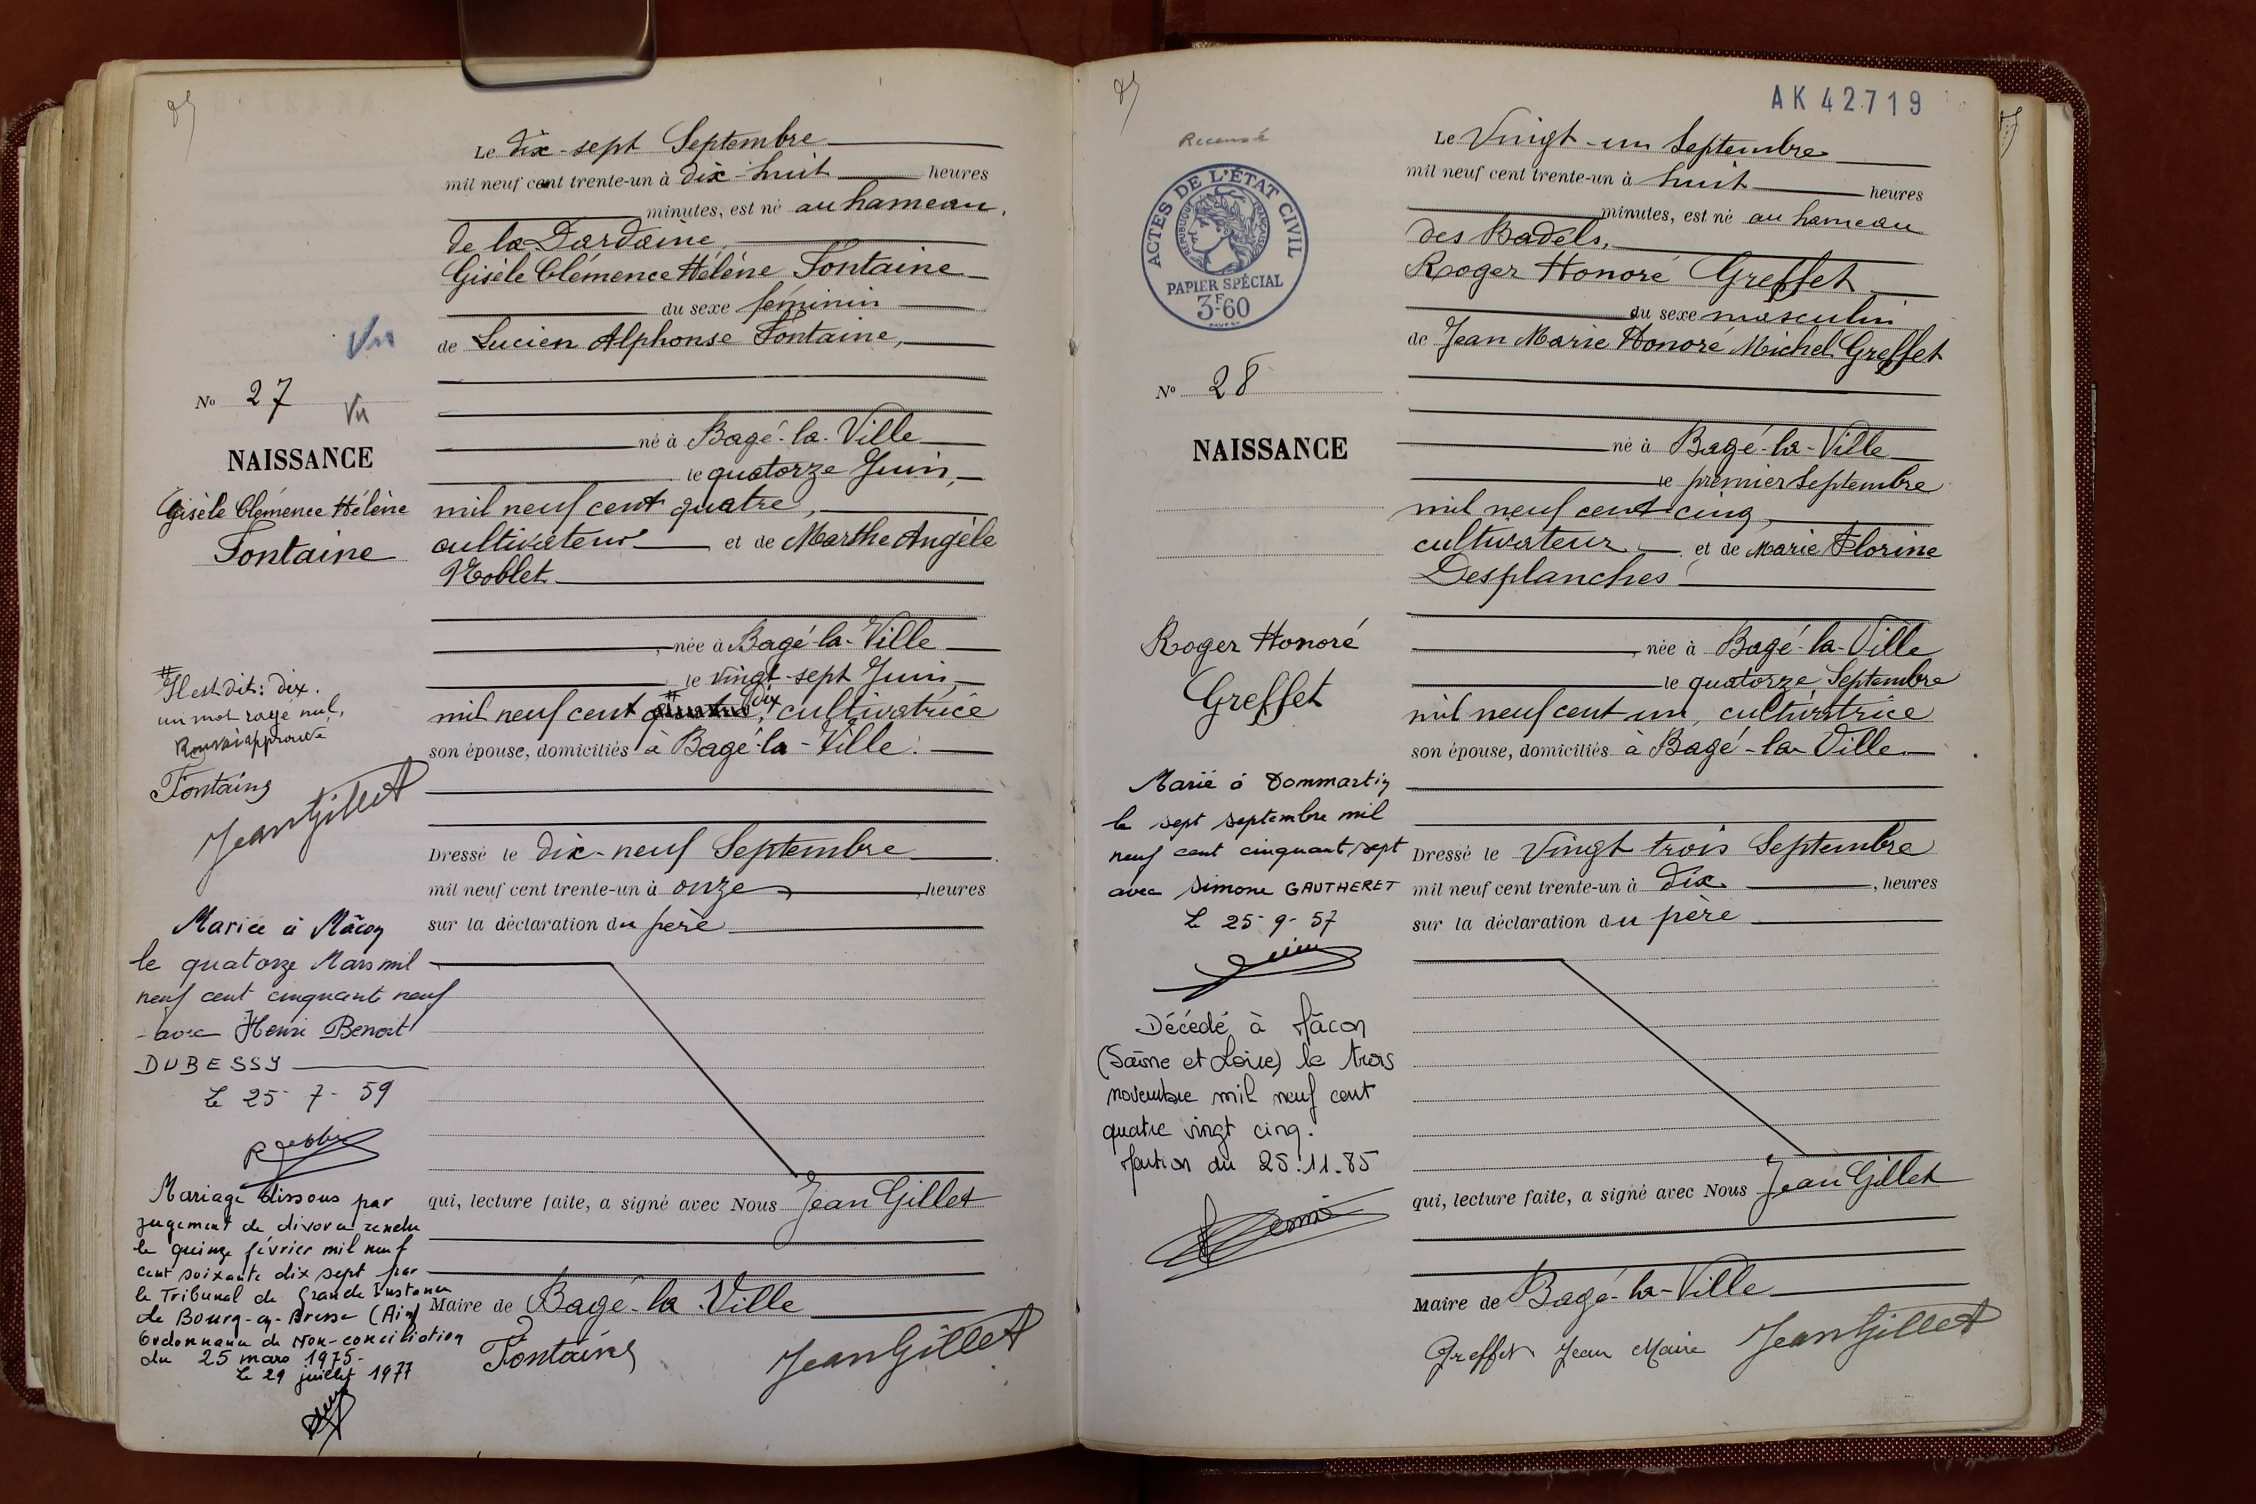 Le dix-sept Septembre
mil neuf cent trente-un à dix-huit heures
minutes, est né au hameau
de la Dardaine,
Gisèle Clémence Hélène Fontaine
du sexe féminin
de Lucien Alphonse Fontaine,
né à Bagé-la-Ville
le quatorze Juin,
mil neuf cent quatre,
cultivateur et de Marthe Angèle
Noblet
née à Bagé-la-Ville
le vingt-sept Juin
mil neuf cent # dix, cultivatrice
son épouse, domiciliés à Bagé-la-Ville.
Dressé le dix-neuf Septembre
mil neuf cent trente-un à onze, heures
sur la déclaration du père
qui, lecture faite, a signé avec Nous Jean Gillet
Maire de Bagé-la-Ville
Fontaine Jean Gillet
Vu
No 27
Vu
NAISSANCE
Gisèle Clémence Hélène
Fontaine
# Il est dit : dix.
un mot rayé nul,
approuvé
Fontaine
Jean Gillet
Mariée à Mâcon
le quatorze Mars mil
neuf cent cinquante neuf
avec Henri Benoit
DUBESSY
Le 25-7-59
Mariage dissous par
jugement de divorce rendu
le quinze février mil neuf
cent soixante dix sept par
le Tribunal de Grande Instance
de Bourg-en-Bresse (Ain)
Ordonnance de Non-conciliation
du 25 mars 1975-
Le 29 juillet 1977
AK 42719
Recensé
ACTES DE L'ÉTAT CIVIL
RÉPUBLIQUE FRANÇAISE
PAPIER SPÉCIAL
3F60
No 28
NAISSANCE
Roger Honoré
Greffet
Marié à Dommartin
le sept septembre mil
neuf cent cinquante sept
avec Simone GAUTHERET
Le 25-9-57
Décédé à Mâcon
(Saône et Loire) le trois
novembre mil neuf cent
quatre vingt cinq.
Mention du 25.11.85
Le Vingt-un Septembre
mil neuf cent trente-un à huit heures
minutes, est né au hameau
des Badels,
Roger Honoré Greffet
du sexe masculin
de Jean Marie Honoré Michel Greffet
né à Bagé-la-Ville
le premier Septembre
mil neuf cent cinq,
cultivateur, et de Marie Florine
Desplanches
née à Bagé-la-Ville
le quatorze Septembre
mil neuf cent un, cultivatrice
son épouse, domiciliés à Bagé-la-Ville.
Dressé le Vingt trois Septembre
mil neuf cent trente-un à dix, heures
sur la déclaration du père
qui, lecture faite, a signé avec Nous Jean Gillet
Maire de Bagé-la-Ville
Greffet Jean Marie Jean Gillet